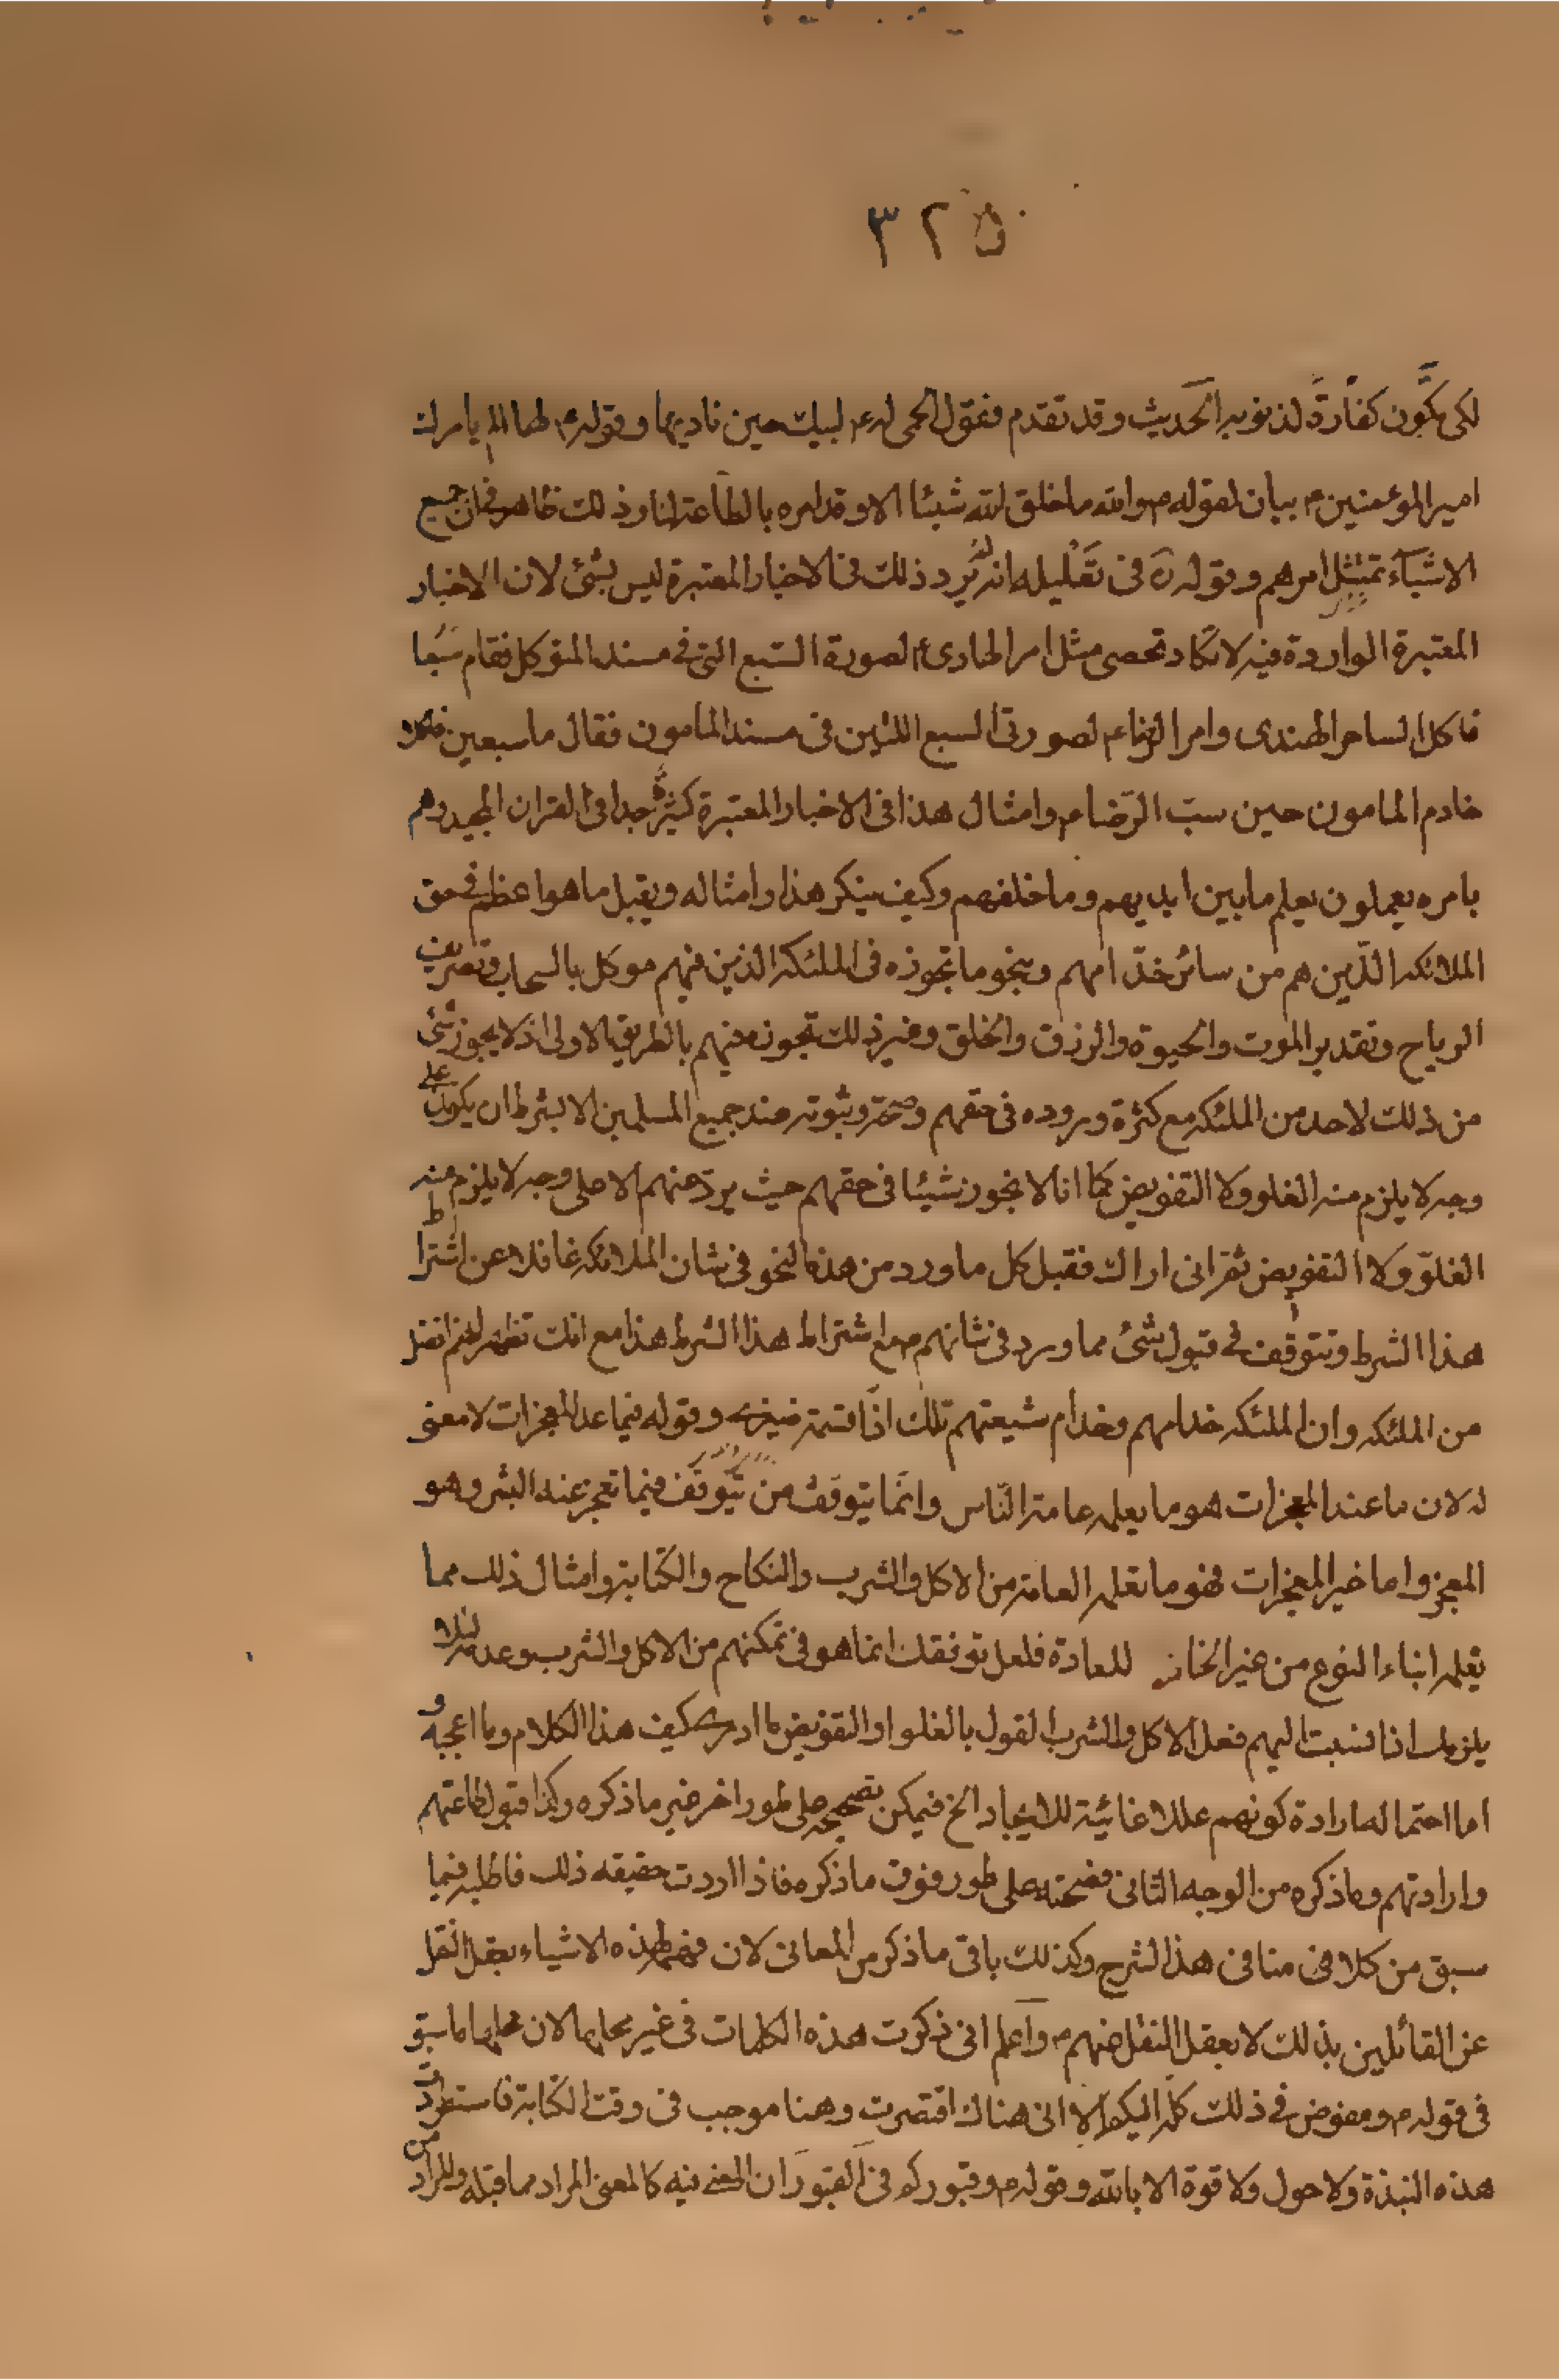 ٣٢٥
لكى يكون كفارة لذنوبه الحديث وقد تقدم فقول الحمى له ع لبيك حين ناديها وقوله م لها الم يامرك
امير المؤمنين م بيان لقوله م والله ما خلق الله شيئا الا وقد امره بالطاعة لنا وذلك ظاهر فى ان جميع
الاشياء تمتثل امرهم وقوله ره فى تعليله انه لم يرد ذلك فى الاخبار المعتبرة ليس بشئ لان الاخبار
المعتبرة الواردة فيه لا تكاد تحصى مثل امر الهادى م لصورة السبع التى فى مسند المتوكل فقام سبعا
فاكل الساحر الهندى وامر الرضا م لصورتى السبع اللتين فى مسند المامون فقال ما سبعين فاكلا
خادم المامون حين سب الرضا م وامثال هذا فى الاخبار المعتبرة كثيرة جدا وفى القران المجيد وهم
بامره يعملون يعلم ما بين ايديهم وما خلفهم وكيف ينكر هذا وامثاله ويقبل ما هو اعظم فى حق
الملائكه الذين هم من سائر خدامهم وبنحو ما تجوزه فى الملئكه الذين فيهم موكل بالسحاب وتصريف
الرياح وتقدير الموت والحيوة والرزق والخلق وغير ذلك تجوزه فيهم بالطريق الاولى اذ لا يجوز شئ
من ذلك لاحد من الملئكه مع كثرة وروده فى حقهم وصحته وثبوته عند جميع المسلمين الا بشرط ان يكون على
وجه لا يلزم منه الغلو ولا التفويض كما انا لا نجوز شيئا فى حقهم حيث يرد عنهم الا على وجه لا يلزم منه
الغلو ولا التفويض ثم انى اراك فقبل كل ما ورد من هذا النحو فى شان الملائكه غافلا عن اشتراط
هذا الشرط وتتوقف فى قبول شئ مما ورد فى شانهم م مع اشتراط هذا الشرط هذا مع انك تظهر انهم افضل
من الملئكه وان الملئكه خدامهم وخدام شيعتهم تلك اذا قسمة ضيزى وقوله فيما عدا المعجزات لا معنى
له لان ما عدا المعجزات هو ما يعلمه عامة الناس وانما يتوقف من يتوقف فيما تعجز عنه البشر وهو
المعجز واما غير المعجزات فهو ما تعلمه العامة من الاكل والشرب والنكاح والكتابة وامثال ذلك مما
يعلمه ابناء النوع من غير الخارق للعادة فلعل توقفك انما هو فى تمكنهم من الاكل والشرب وعدمه لئلا
يلزمك اذا نسبت اليهم فعل الاكل والشرب القول بالغلو او التفويض ما ادرى كيف هذا الكلام وما اعجبه و
اما احتماله ارادة كونهم عللا غائية للايجاد الخ فيمكن تصحيحه على طور اخر غير ما ذكره وكذا قبول طاعتهم
وارادتهم وما ذكره من الوجه الثانى فصحته على طور فوق ما ذكره فاذا اردت حقيقه ذلك فاطلبه فيما
سبق من كلامى منا فى هذا الشرح وكذلك باقى ما ذكر من المعانى لان فهم لهذه الاشياء بعقل النقل
عن القائلين بذلك لا بعقل النقل عنهم م واعلم انى ذكرت هذه الكلمات فى غير محلها لان محلها ما سبق
فى قوله م ومفوض فى ذلك كله اليكم الا انى هناك اقتصرت وهنا موجب فى وقت الكتابة فاستطردت
هذه النبذة ولا حول ولا قوة الا بالله وقوله م وقبوركم فى القبور ان المعنى فيه كالمعنى المراد مما قبله والمراد من